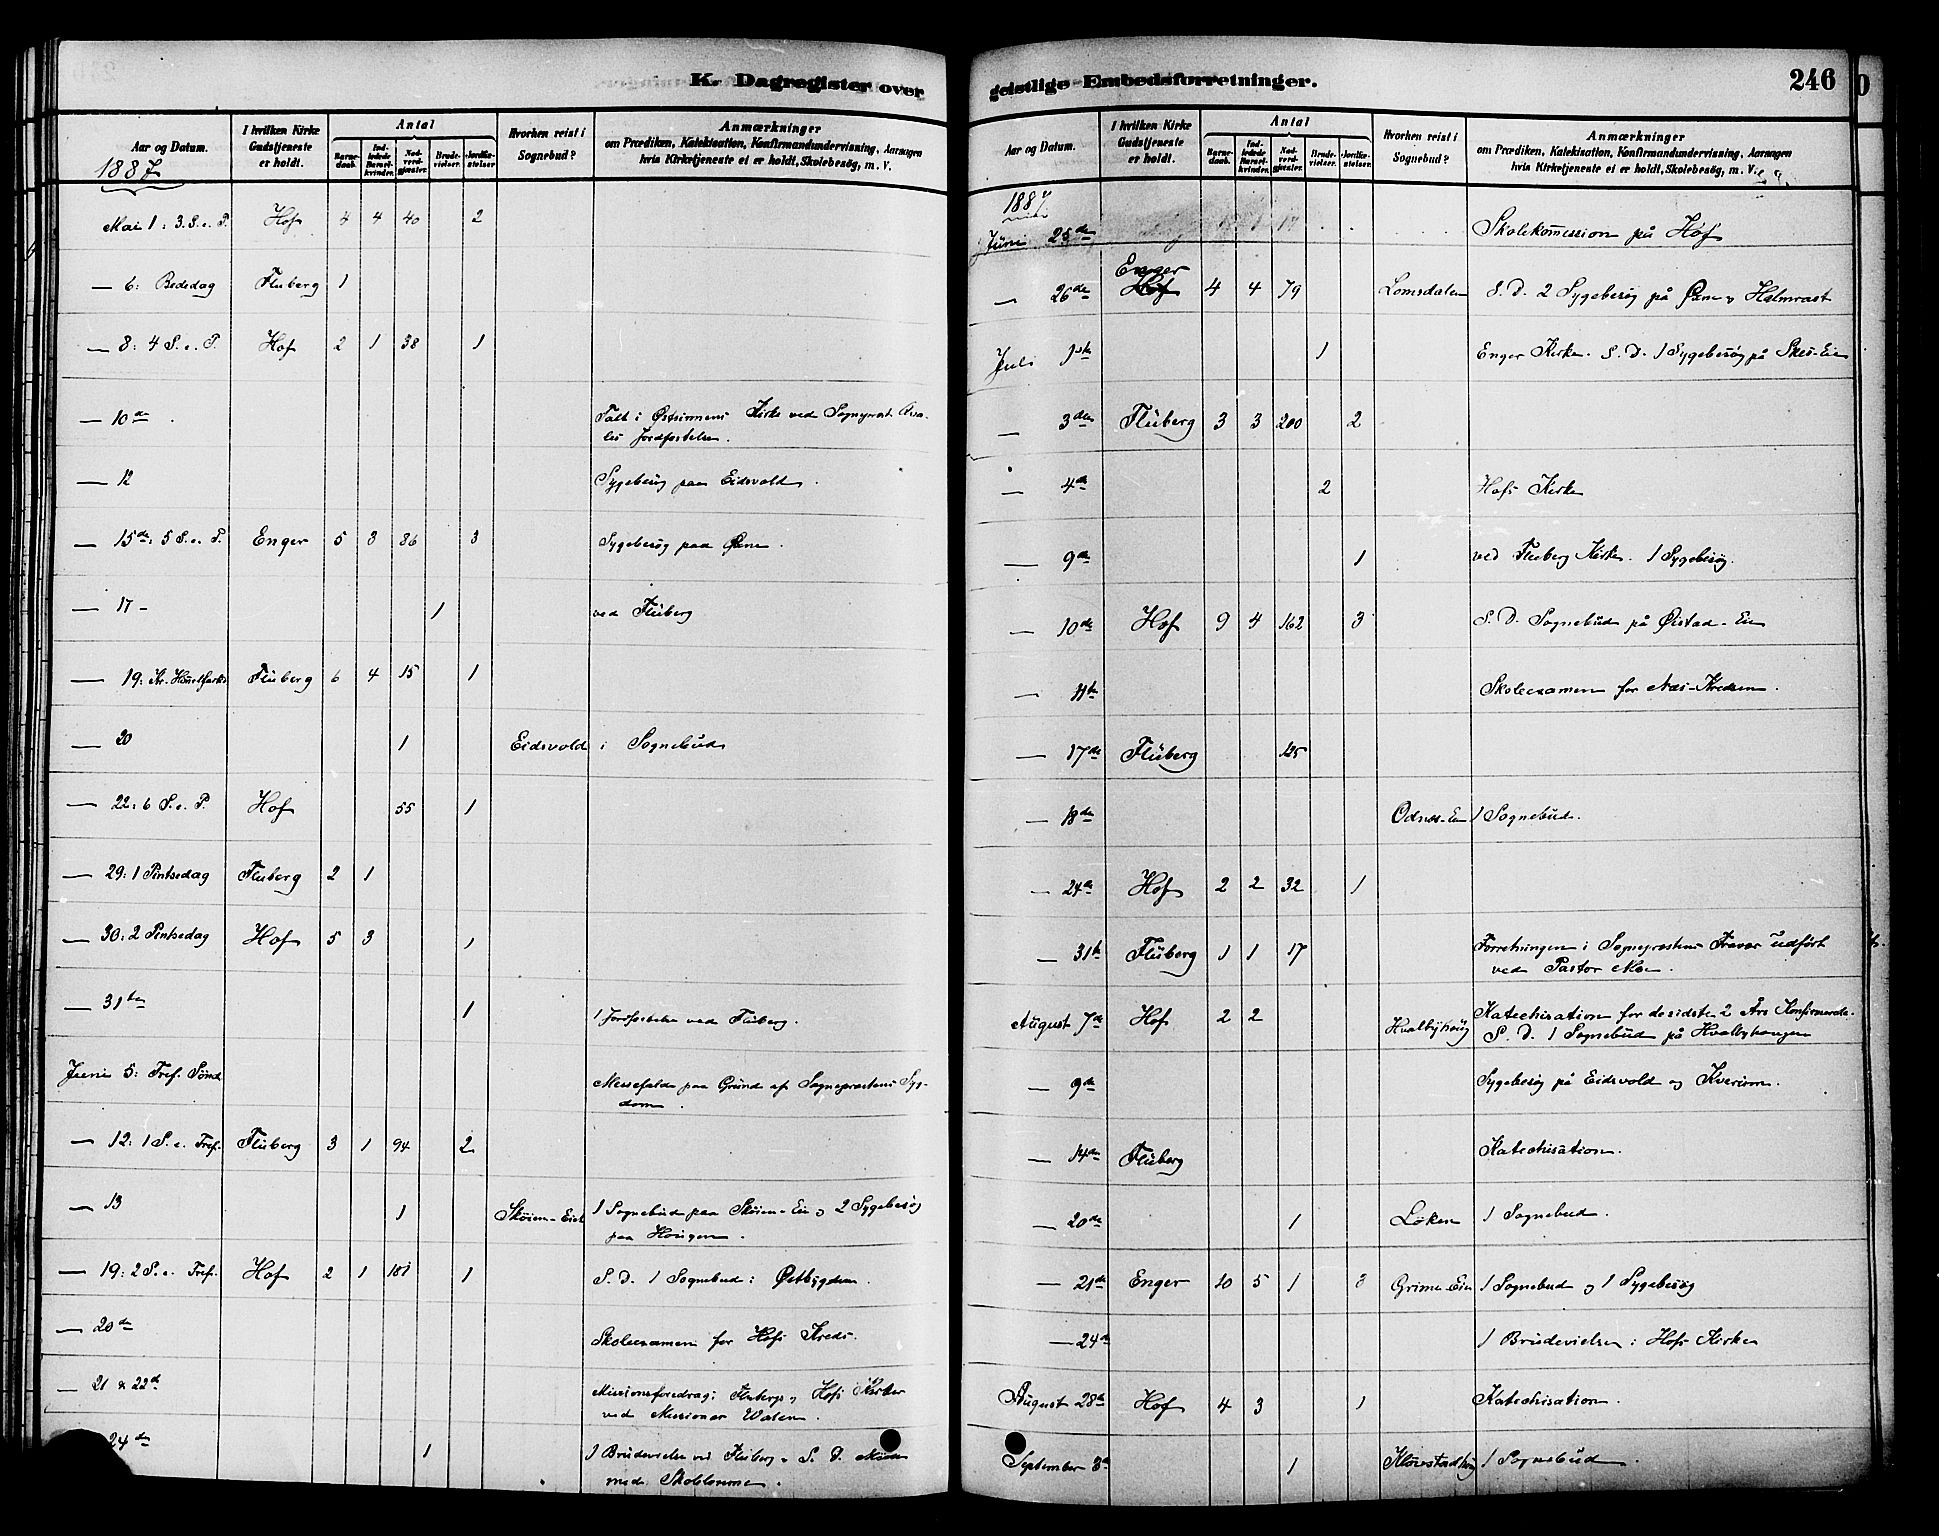 K. Dagregister over
Aar og Datum.
I hvilken Kirke Gudstjeneste er holdt.
Antal
Barnedaab.
Indledede Barselkvinder.
Nadverdgjæster.
Brudevielser.
Jordfæstelser.
Hvorhen reist i Sognebud?
Anmærkninger
om Prædiken, Katekisation, Konfirmandundervisning, Aarsagen
hvis Kirketjeneste ei er holdt, Skolebesög, m. V.
1887
Mai 1: 3. S. e. P. Hof 4 4 40 2
— 6: Bededag Fluberg 1
— 8: 4 S. e. P. Hof 2 1 38 1
— 10de Talt i Østsinnens Kirke ved Sogneprest
Jordfestelse.
— 12 Sygebesøg paa Eidsvold.
— 15de: 5 S. e. P. Enger 5 3 86 3 Sygebesøg paa
— 17 - 1 ved Fluberg
— 19: Kr. Himelfarts Fluberg 6 4 15 1
— 20 1 Eidsvold i Sognebud
— 22: 6 S. e. P. Hof 55 1
— 29: 1 Pintsedag Fluberg 2 1
— 30: 2 Pintsedag Hof 5 3 1
— 31te 1 1 Jordfestelse ved Fluberg.
Juni 5: Tref. Sønd. Messefald paa Grund af Sogneprestens Syg-
dom.
— 12: 1 S. e. Tref. Fluberg 3 1 94 2
— 13 1 Skøien-Eiet 1 Sognebud paa Skøien-Eie og 2 Sygebesøg
paa Haugen.
— 19: 2 S. e. Tref. Hof 2 1 101 1 S. D. 1 Sognebud i Østbygden.
— 20de Skoleexamen for Hofs Kreds.
— 21 & 22de Missionsforedrag i Flubergs og Hofs Kirker
ved Missionær
24de 1 1 Brudevielse ved Fluberg. S. D. Møde
med
geistlige Embedsforretninger.
246
Aar og Datum.
I hvilken Kirke Gudstjeneste er holdt.
Antal
Barnedaab.
Indledede Barselkvinder.
Nadverdgjæster.
Brudevielser.
Jordfæstelser.
Hvorhen reist i Sognebud?
Anmærkninger
om Prædiken, Katekisation, Konfirmandundervisning, Aarsagen
hvis Kirketjeneste ei er holdt, Skolebesög, m. V.
1887
Juni 25de Skolekomission på Hof
— 26de Enger 4 4 79 Lomsdalen S. D. 2 Sygebesøg på og Halmrast
Juli 1ste 1 Enger Kirke. S. D. 1 Sygebesøg på
— 3die Fluberg 3 3 200 2
— 4de 2 Hofs Kirke
— 9de 1 ved Fluberg Kirke. 1 Sygebesøg.
— 10de Hof 9 4 162 3 S. D. Sognebud på Øistad-Eie
— 11te Skoleexamen for Næs-Kredsen.
— 17de Fluberg 125
— 18de Odnæs-Eie 1 Sognebud.
— 24de Hof 2 2 32 1
— 31te Fluberg 1 1 17 Forretningen i Sogneprestens Fravær udført
ved Pastor Moe.
August 7de Hof 2 2 Hvalbyhaug Katechisation for de sidste 2 Års Konfirmerede.
S. D. 1 Sognebud på Hvalbyhaugen
— 9de Sygebesøg på Eidsvold og
— 14de Fluberg Katechisation.
— 20de 1 Løken 1 Sognebud.
— 21de Enger 10 5 1 3 Grime-Eie 1 Sognebud og 1 Sygebesøg
— 24de 1 Brudevielse i Hofs Kirke
August 28de Hof 4 3 1 Katechisation.
September 3de 1 1 Sognebud.